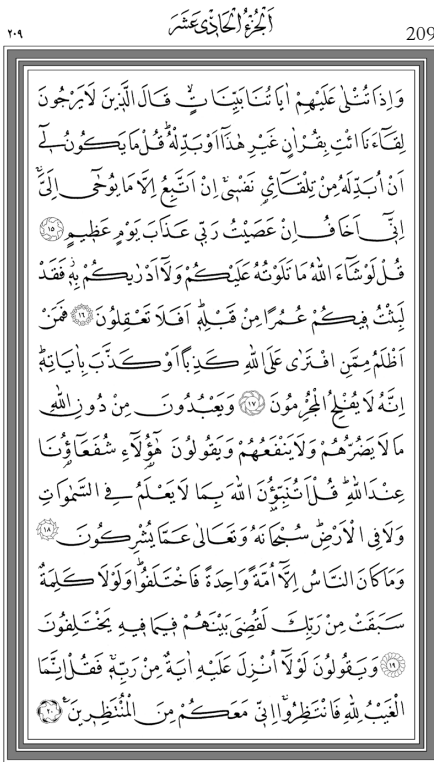 ٢٠٩ اَلْجُزْءُ الْحَادِيَ عَشَرَ 209
وَاِذَا تُتْلٰى عَلَيْهِمْ اٰيَاتُنَا بَيِّنَاتٍۙ قَالَ الَّذٖينَ لَا يَرْجُونَ
لِقَٓاءَنَا ائْتِ بِقُرْاٰنٍ غَيْرِ هٰذَٓا اَوْ بَدِّلْهُؕ قُلْ مَا يَكُونُ لٖٓي
اَنْ اُبَدِّلَهُ مِنْ تِلْقَٓائِ۬ نَفْسٖيۚ اِنْ اَتَّبِعُ اِلَّا مَا يُوحٰٓى اِلَيَّۚ
اِنّٖٓي اَخَافُ اِنْ عَصَيْتُ رَبّٖي عَذَابَ يَوْمٍ عَظٖيمٍ ﴿١٥﴾
قُلْ لَوْ شَٓاءَ اللّٰهُ مَا تَلَوْتُهُ عَلَيْكُمْ وَلَٓا اَدْرٰيكُمْ بِهٖؗ فَقَدْ
لَبِثْتُ فٖيكُمْ عُمُرًا مِنْ قَبْلِهٖؕ اَفَلَا تَعْقِلُونَ ﴿١٦﴾ فَمَنْ
اَظْلَمُ مِمَّنِ افْتَرٰى عَلَى اللّٰهِ كَذِبًا اَوْ كَذَّبَ بِاٰيَاتِهٖؕ
اِنَّهُ لَا يُفْلِحُ الْمُجْرِمُونَ ﴿١٧﴾ وَيَعْبُدُونَ مِنْ دُونِ اللّٰهِ
مَا لَا يَضُرُّهُمْ وَلَا يَنْفَعُهُمْ وَيَقُولُونَ هٰٓؤُ۬لَٓاءِ شُفَعَٓاؤُ۬نَا
عِنْدَ اللّٰهِؕ قُلْ اَتُنَبِّؤُ۫نَ اللّٰهَ بِمَا لَا يَعْلَمُ فِي السَّمٰوَاتِ
وَلَا فِي الْاَرْضِؕ سُبْحَانَهُ وَتَعَالٰى عَمَّا يُشْرِكُونَ ﴿١٨﴾
وَمَا كَانَ النَّاسُ اِلَّٓا اُمَّةً وَاحِدَةً فَاخْتَلَفُواؕ وَلَوْلَا كَلِمَةٌ
سَبَقَتْ مِنْ رَبِّكَ لَقُضِيَ بَيْنَهُمْ فٖيمَا فٖيهِ يَخْتَلِفُونَ
﴿١٩﴾ وَيَقُولُونَ لَوْلَٓا اُنْزِلَ عَلَيْهِ اٰيَةٌ مِنْ رَبِّهٖۚ فَقُلْ اِنَّمَا
الْغَيْبُ لِلّٰهِ فَانْتَظِرُواۚ اِنّٖي مَعَكُمْ مِنَ الْمُنْتَظِرٖينَ۟ ﴿٢٠﴾